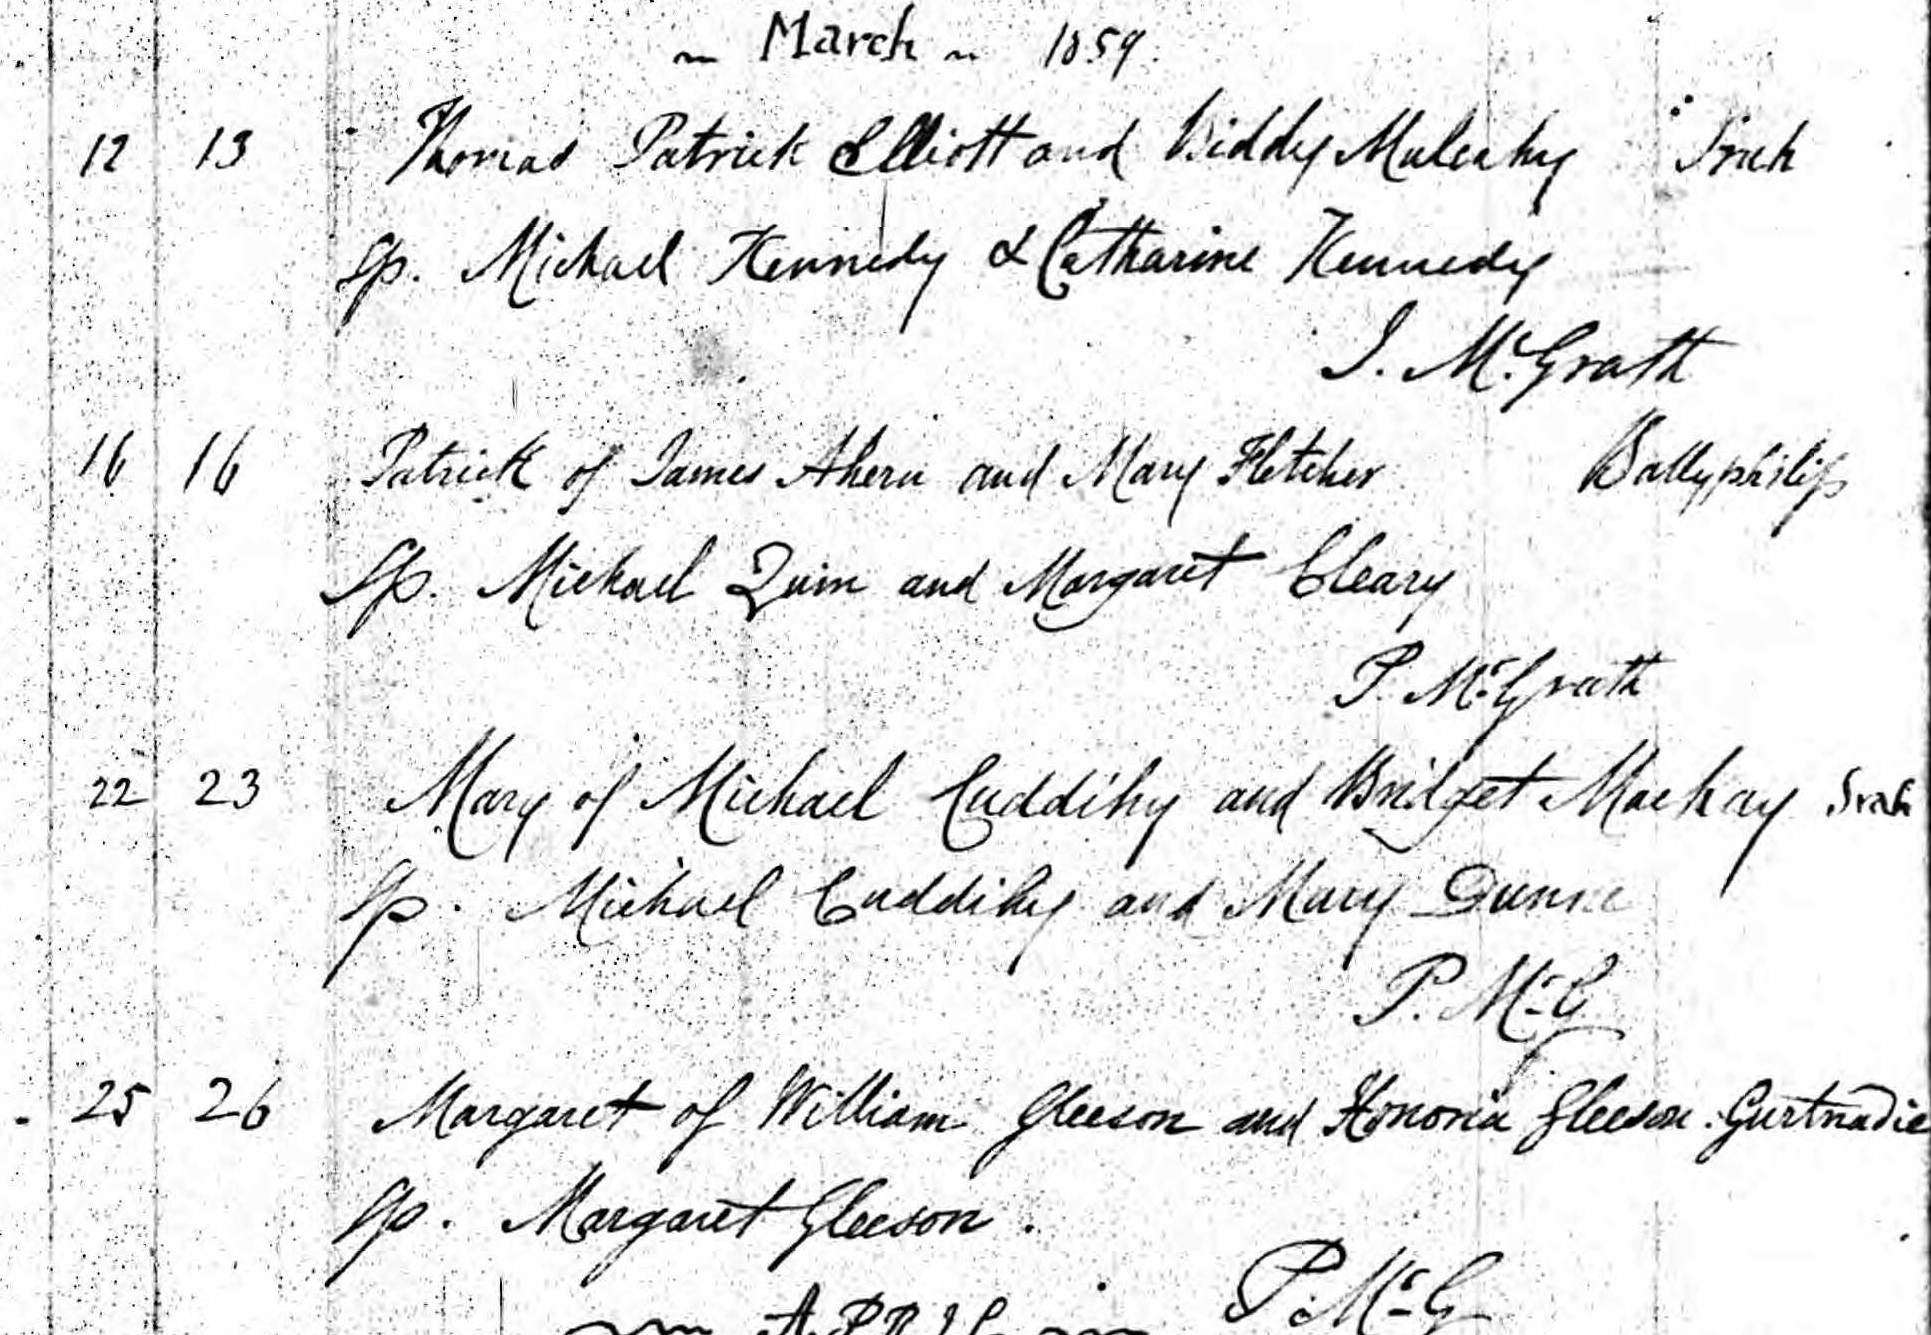 ~ March ~ 1859.
12 13 Thomas Patrick Elliott and Biddy Mulcahy Srah
Sp. Michael Kennedy & Catharine Kennedy
J. McGrath
16 16 Patrick of James Ahern and Mary Fletcher Ballyphilip
Sp. Michael Quin and Margaret Cleary
P. McGrath
22 23 Mary of Michael Cuddihy and Bridget Mackay Srah
Sp. Michael Cuddihy and Mary Dunne
P. McG
25 26 Margaret of William Gleeson and Honoria Gleeson. Gurtnadie
Sp. Margaret Gleeson.
P. McG
~ APRIL ~